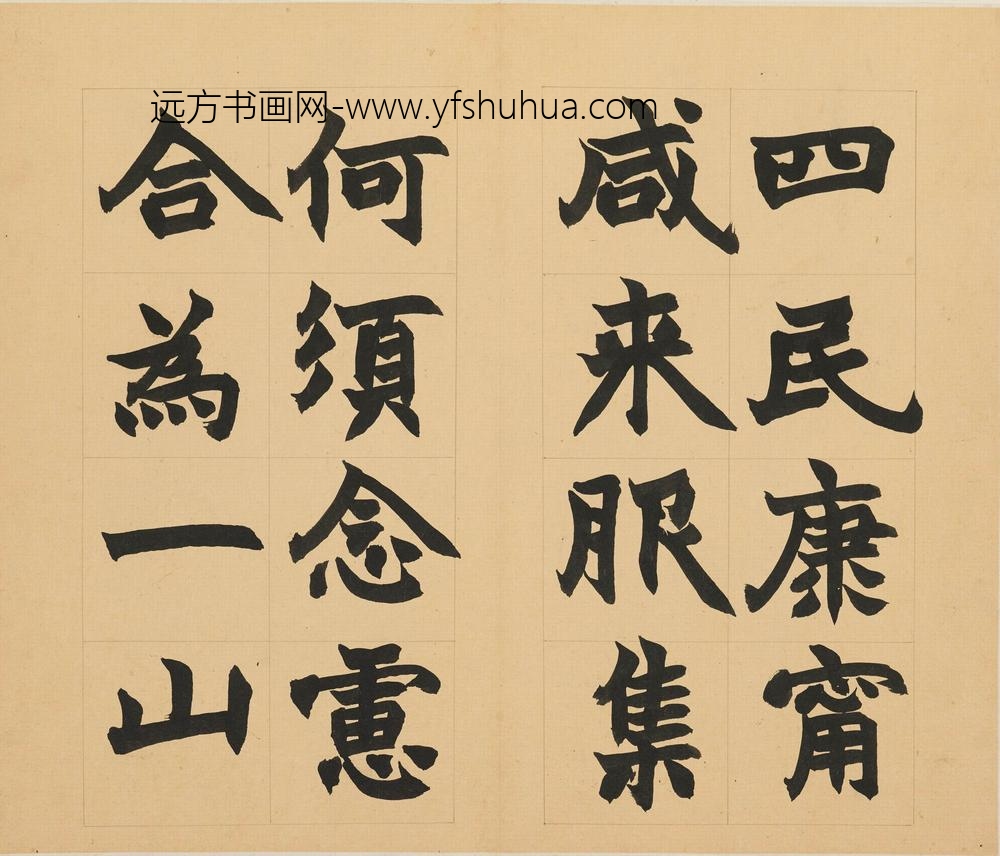 远方书画网-www.yfshuhua.com
四民康甯
咸来服集
何須念慮
合為一山